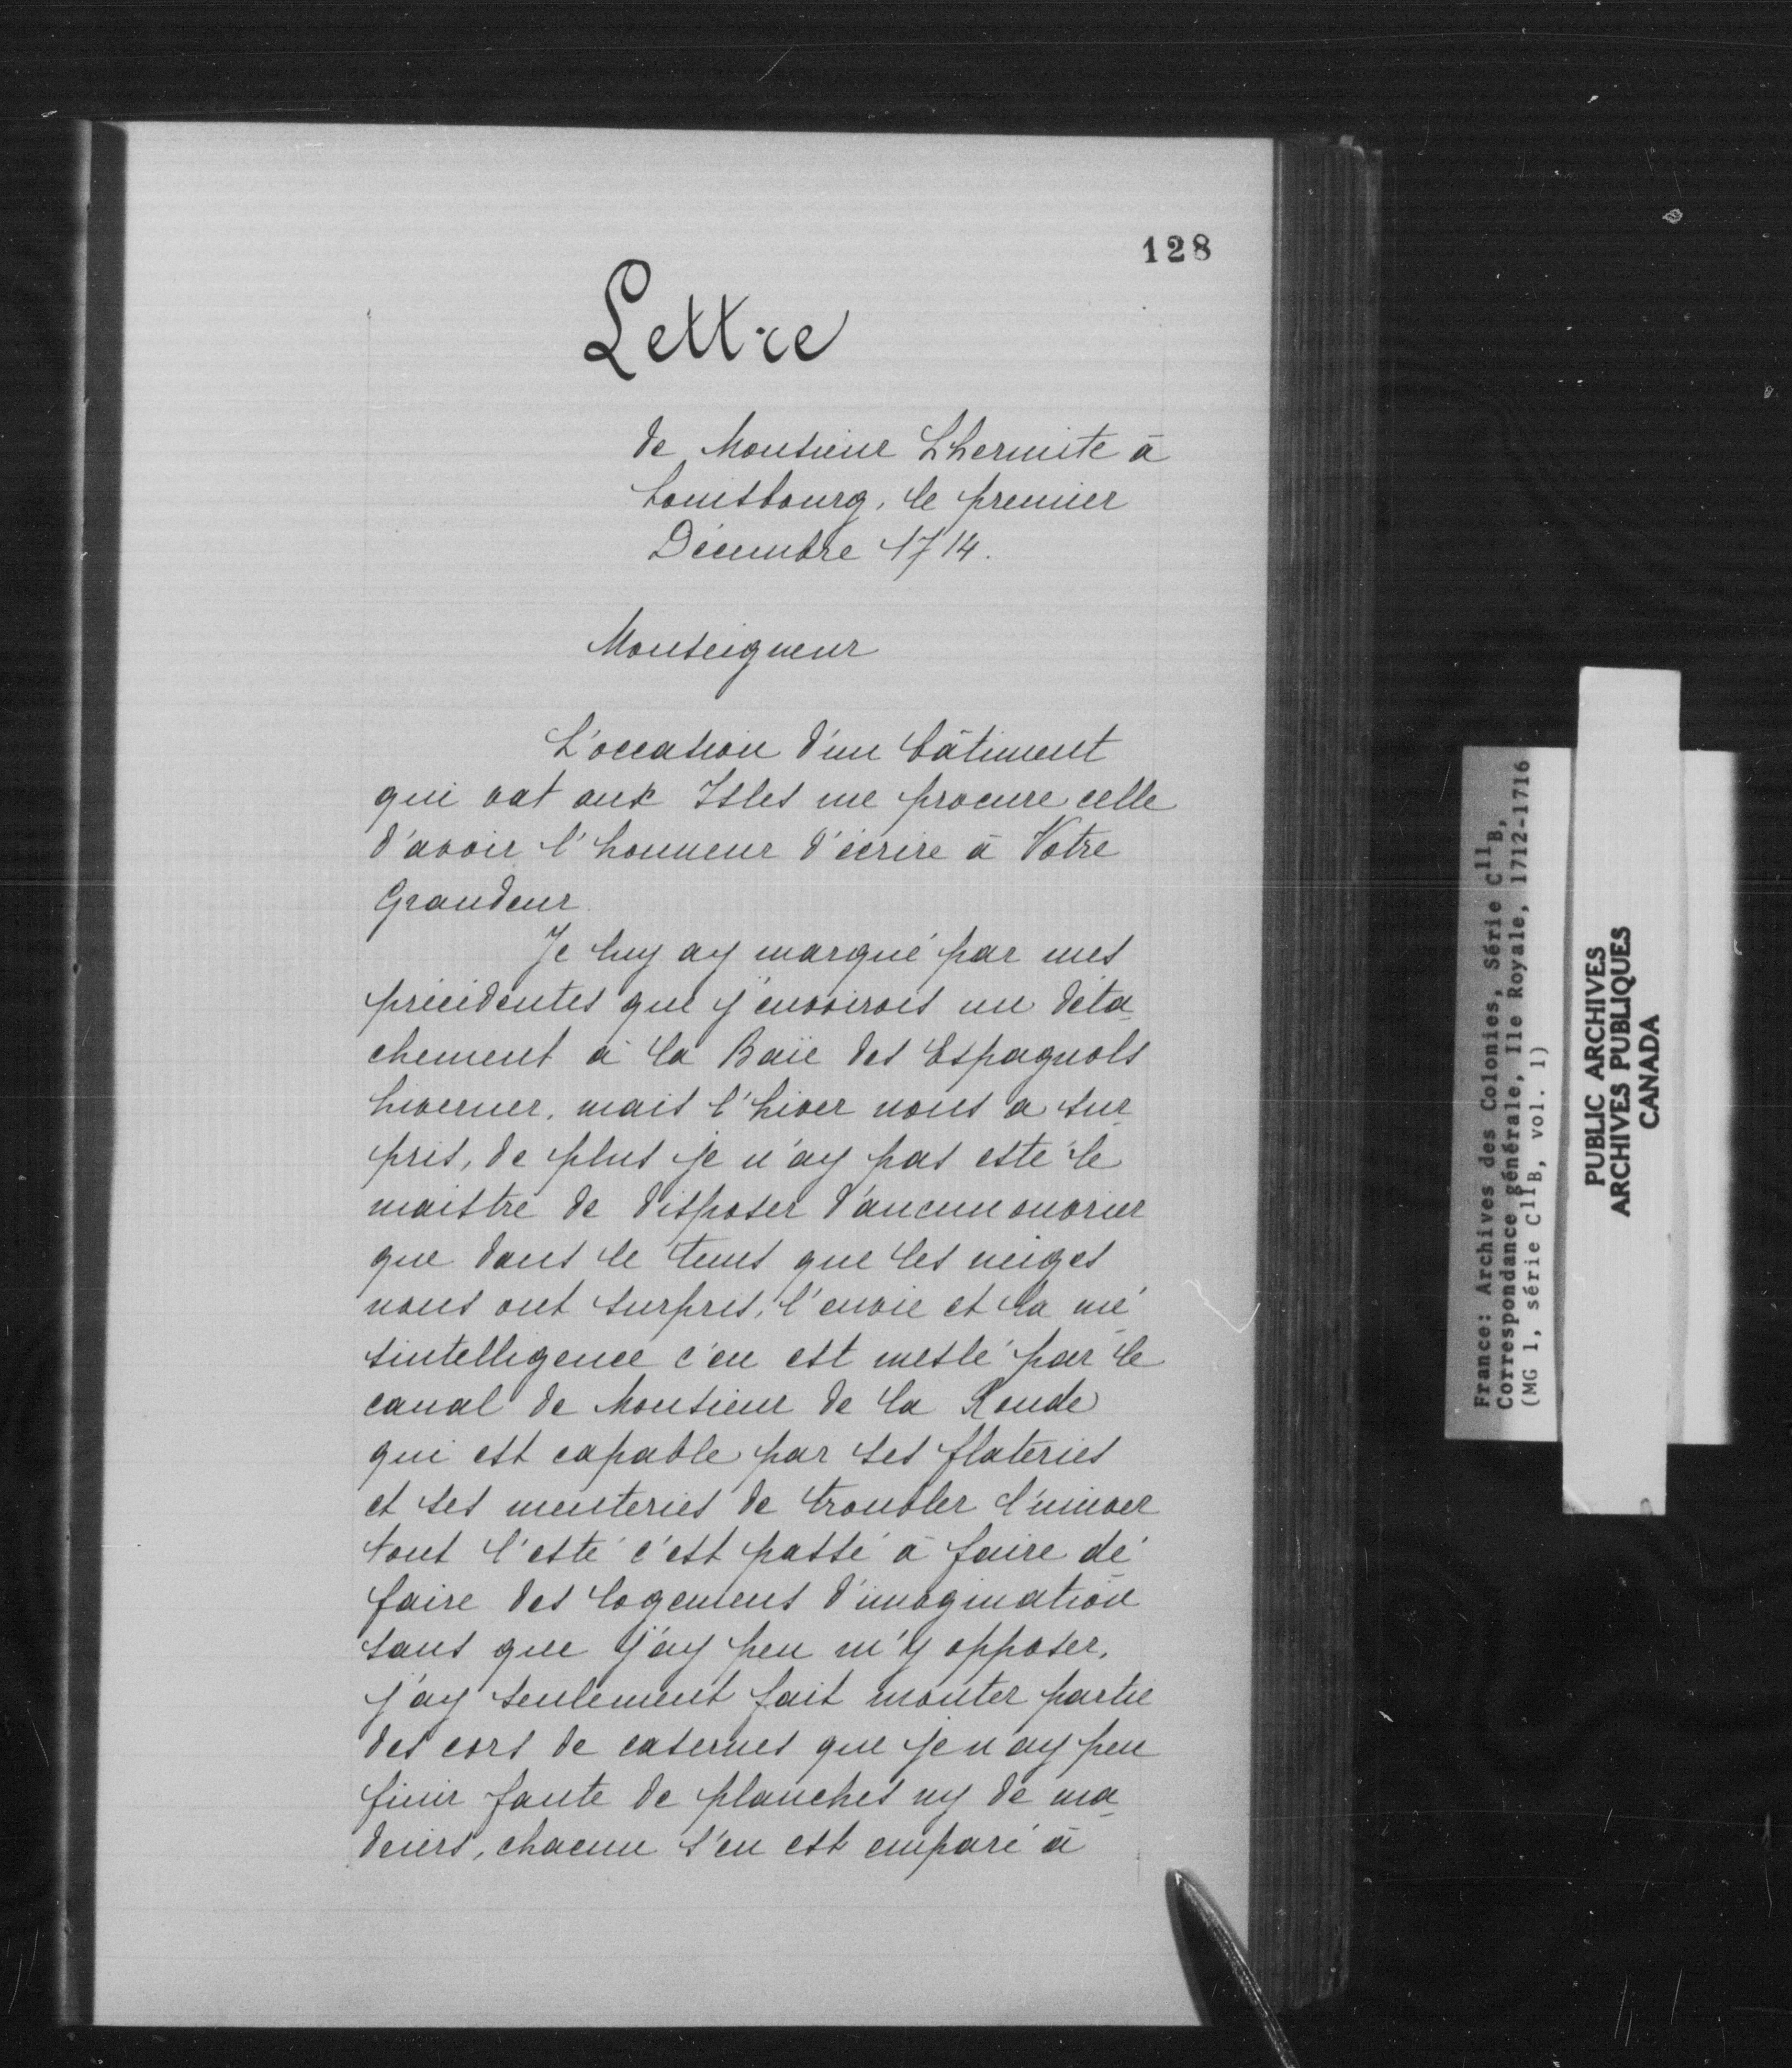 128
Lettre
de Monsieur Lhermite à
Louisbourg, le premier
Décembre 1714.
Monseigneur
L'occasion d'un bâtiment
qui vat aux Isles me procure celle
d'avoir l'honneur d'écrire à Votre
Grandeur.
Je luy ay marqué par mes
précédentes que j'envoirois un déta-
chement à la Baie des Espagnols
hiverner, mais l'hiver nous a sur-
pris, de plus je n'ay pas esté le
maistre de disposer d'aucun ouvrier
que dans le tems que les neiges
nous ont surpris, l'envie et la mé-
sintelligence c'en est meslé par le
canal de Monsieur de la Ronde
qui est capable par ses flateries
et ses menteries de troubler l'univer
tout l'esté c'est passé à faire dé-
faire des logemens d'imagination
sans que j'ay peu m'y opposer,
j'ay seulement fait monter partie
des cors de casernes que je n'ay peu
finir faute de planches ny de ma-
deiers, chacun s'en est emparé à
France: Archives des Colonies, Série C11B,
Correspondance générale, Ile Royale, 1712-1716
(MG 1, série C11B, vol. 1)
PUBLIC ARCHIVES
ARCHIVES PUBLIQUES
CANADA